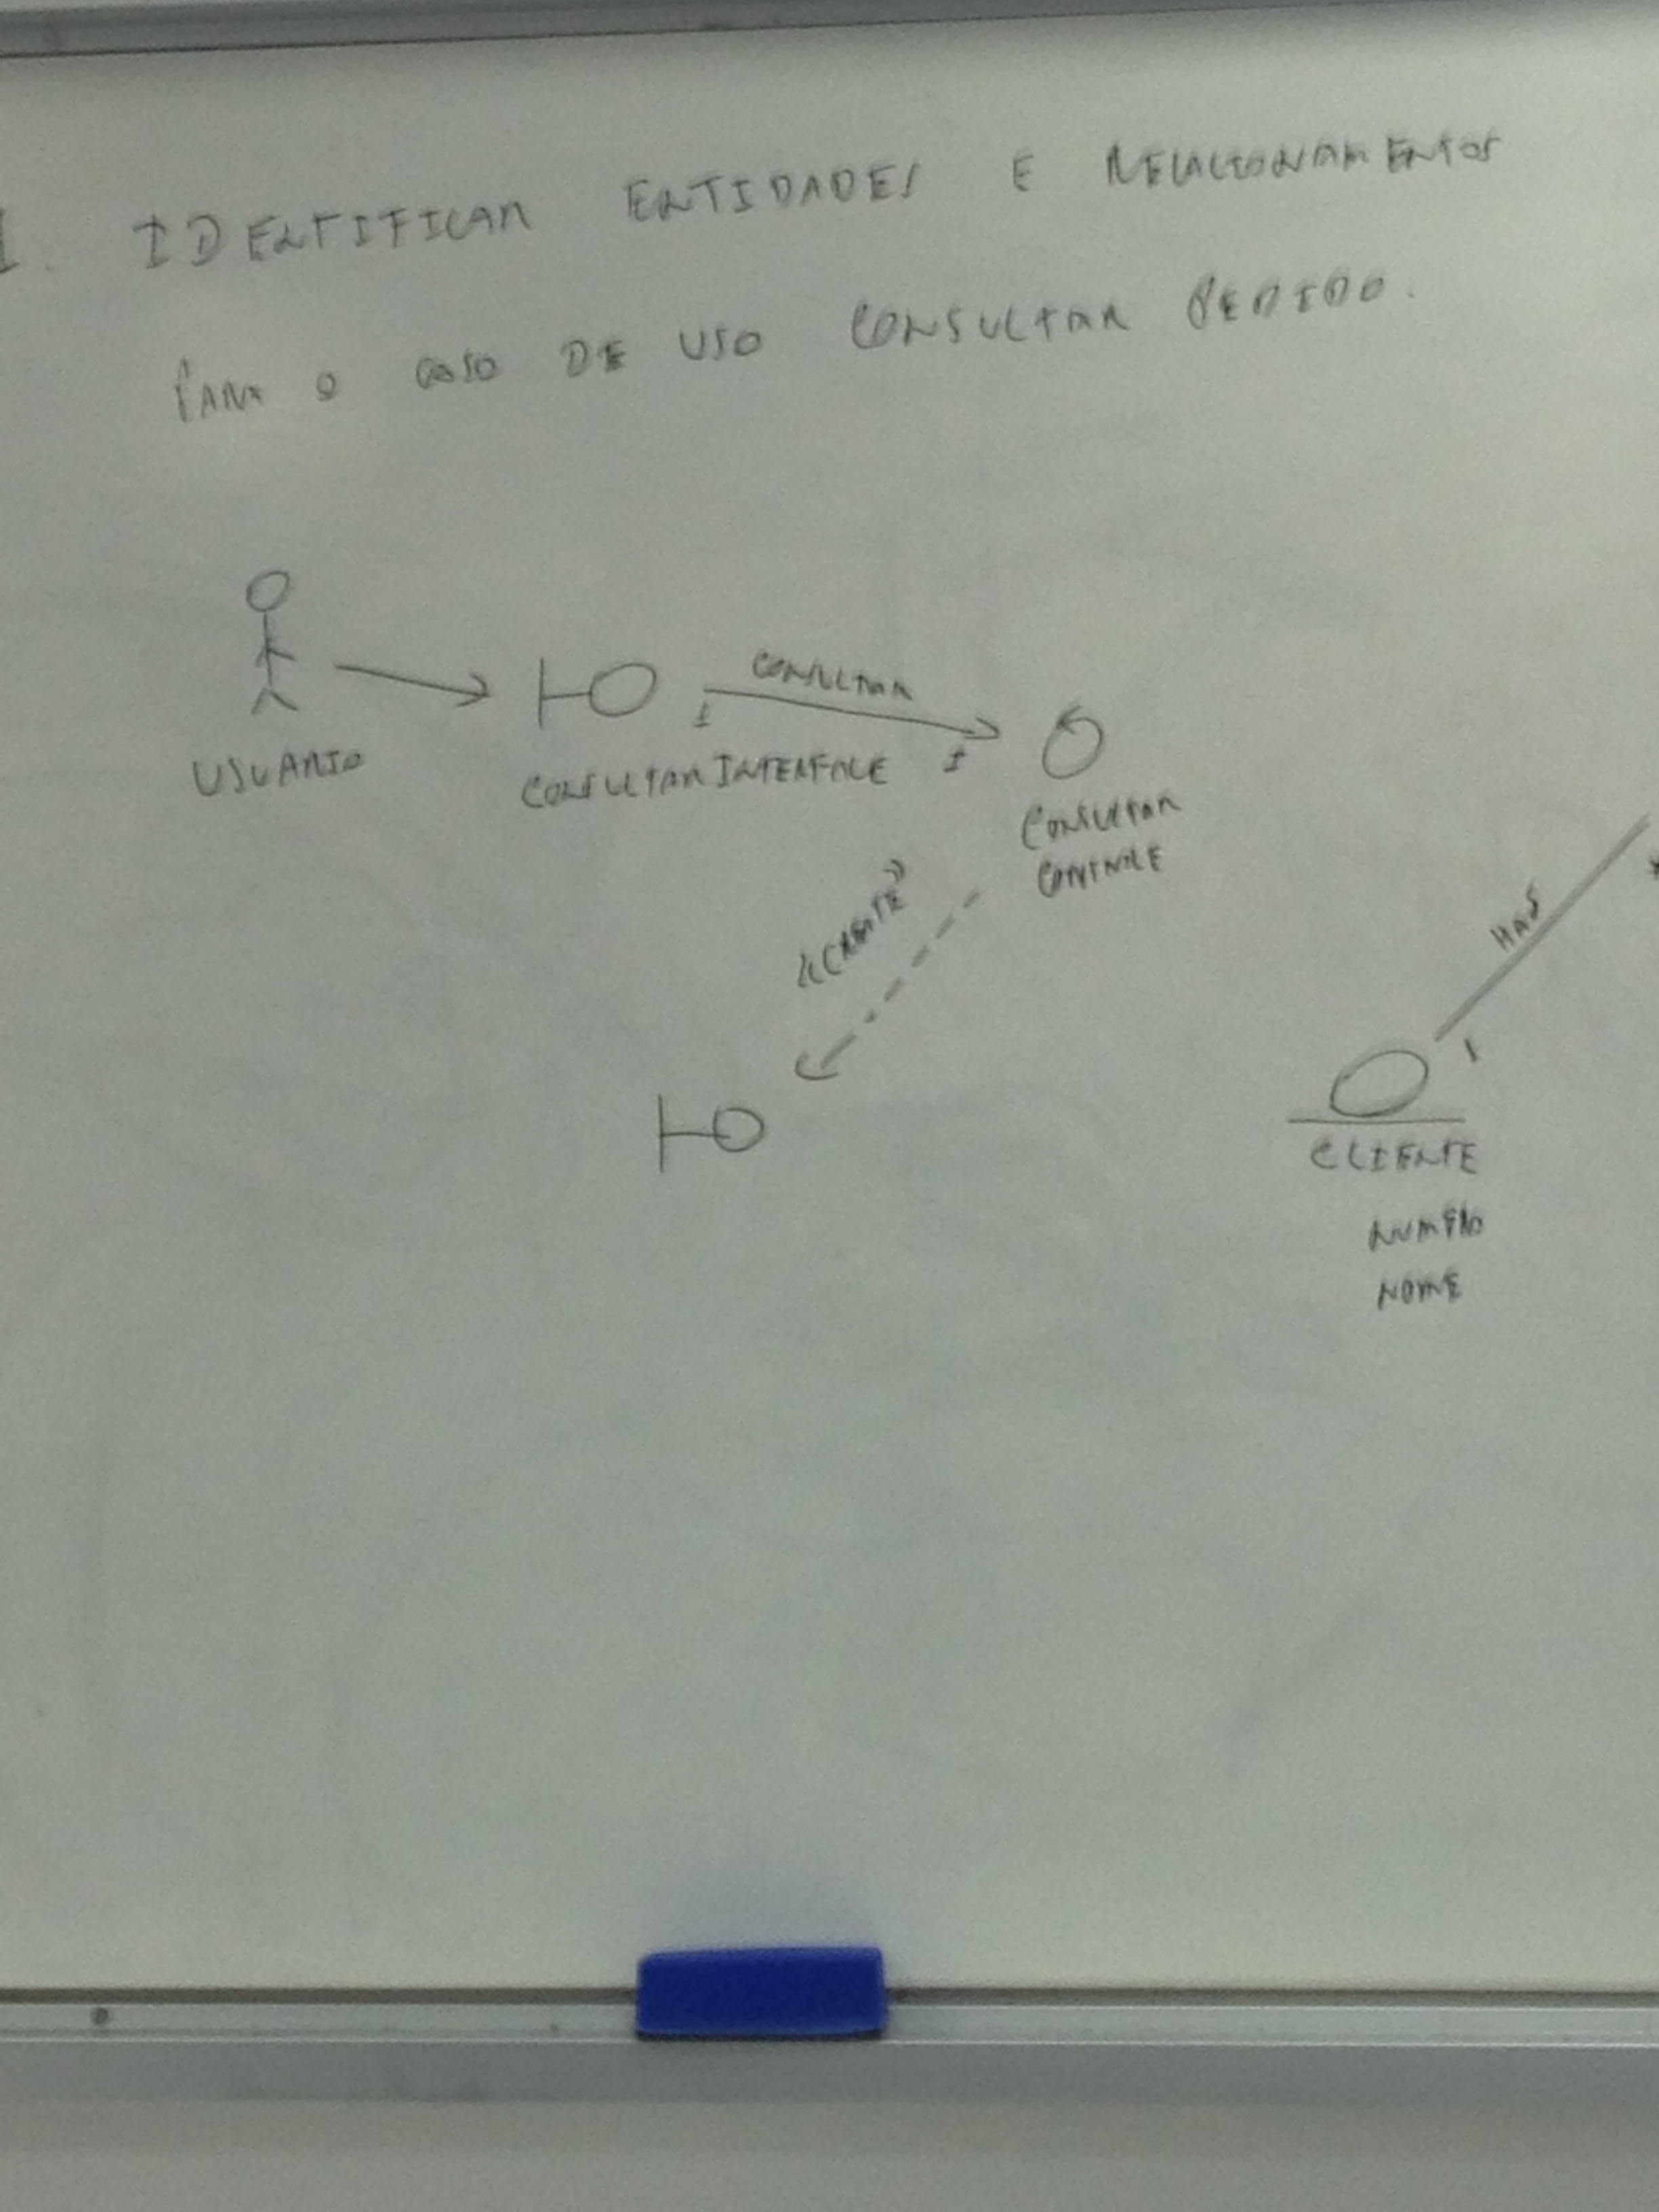 1. IDENTIFICAR ENTIDADES E RELACIONAMENTOS
PARA O CASO DE USO CONSULTAR PEDIDO.
CONSULTAR
1
1
USUARIO
CONSULTAR INTERFACE
CONSULTAR
CONTROLE
<<CREATE>>
HAS
*
1
CLIENTE
NUMERO
NOME